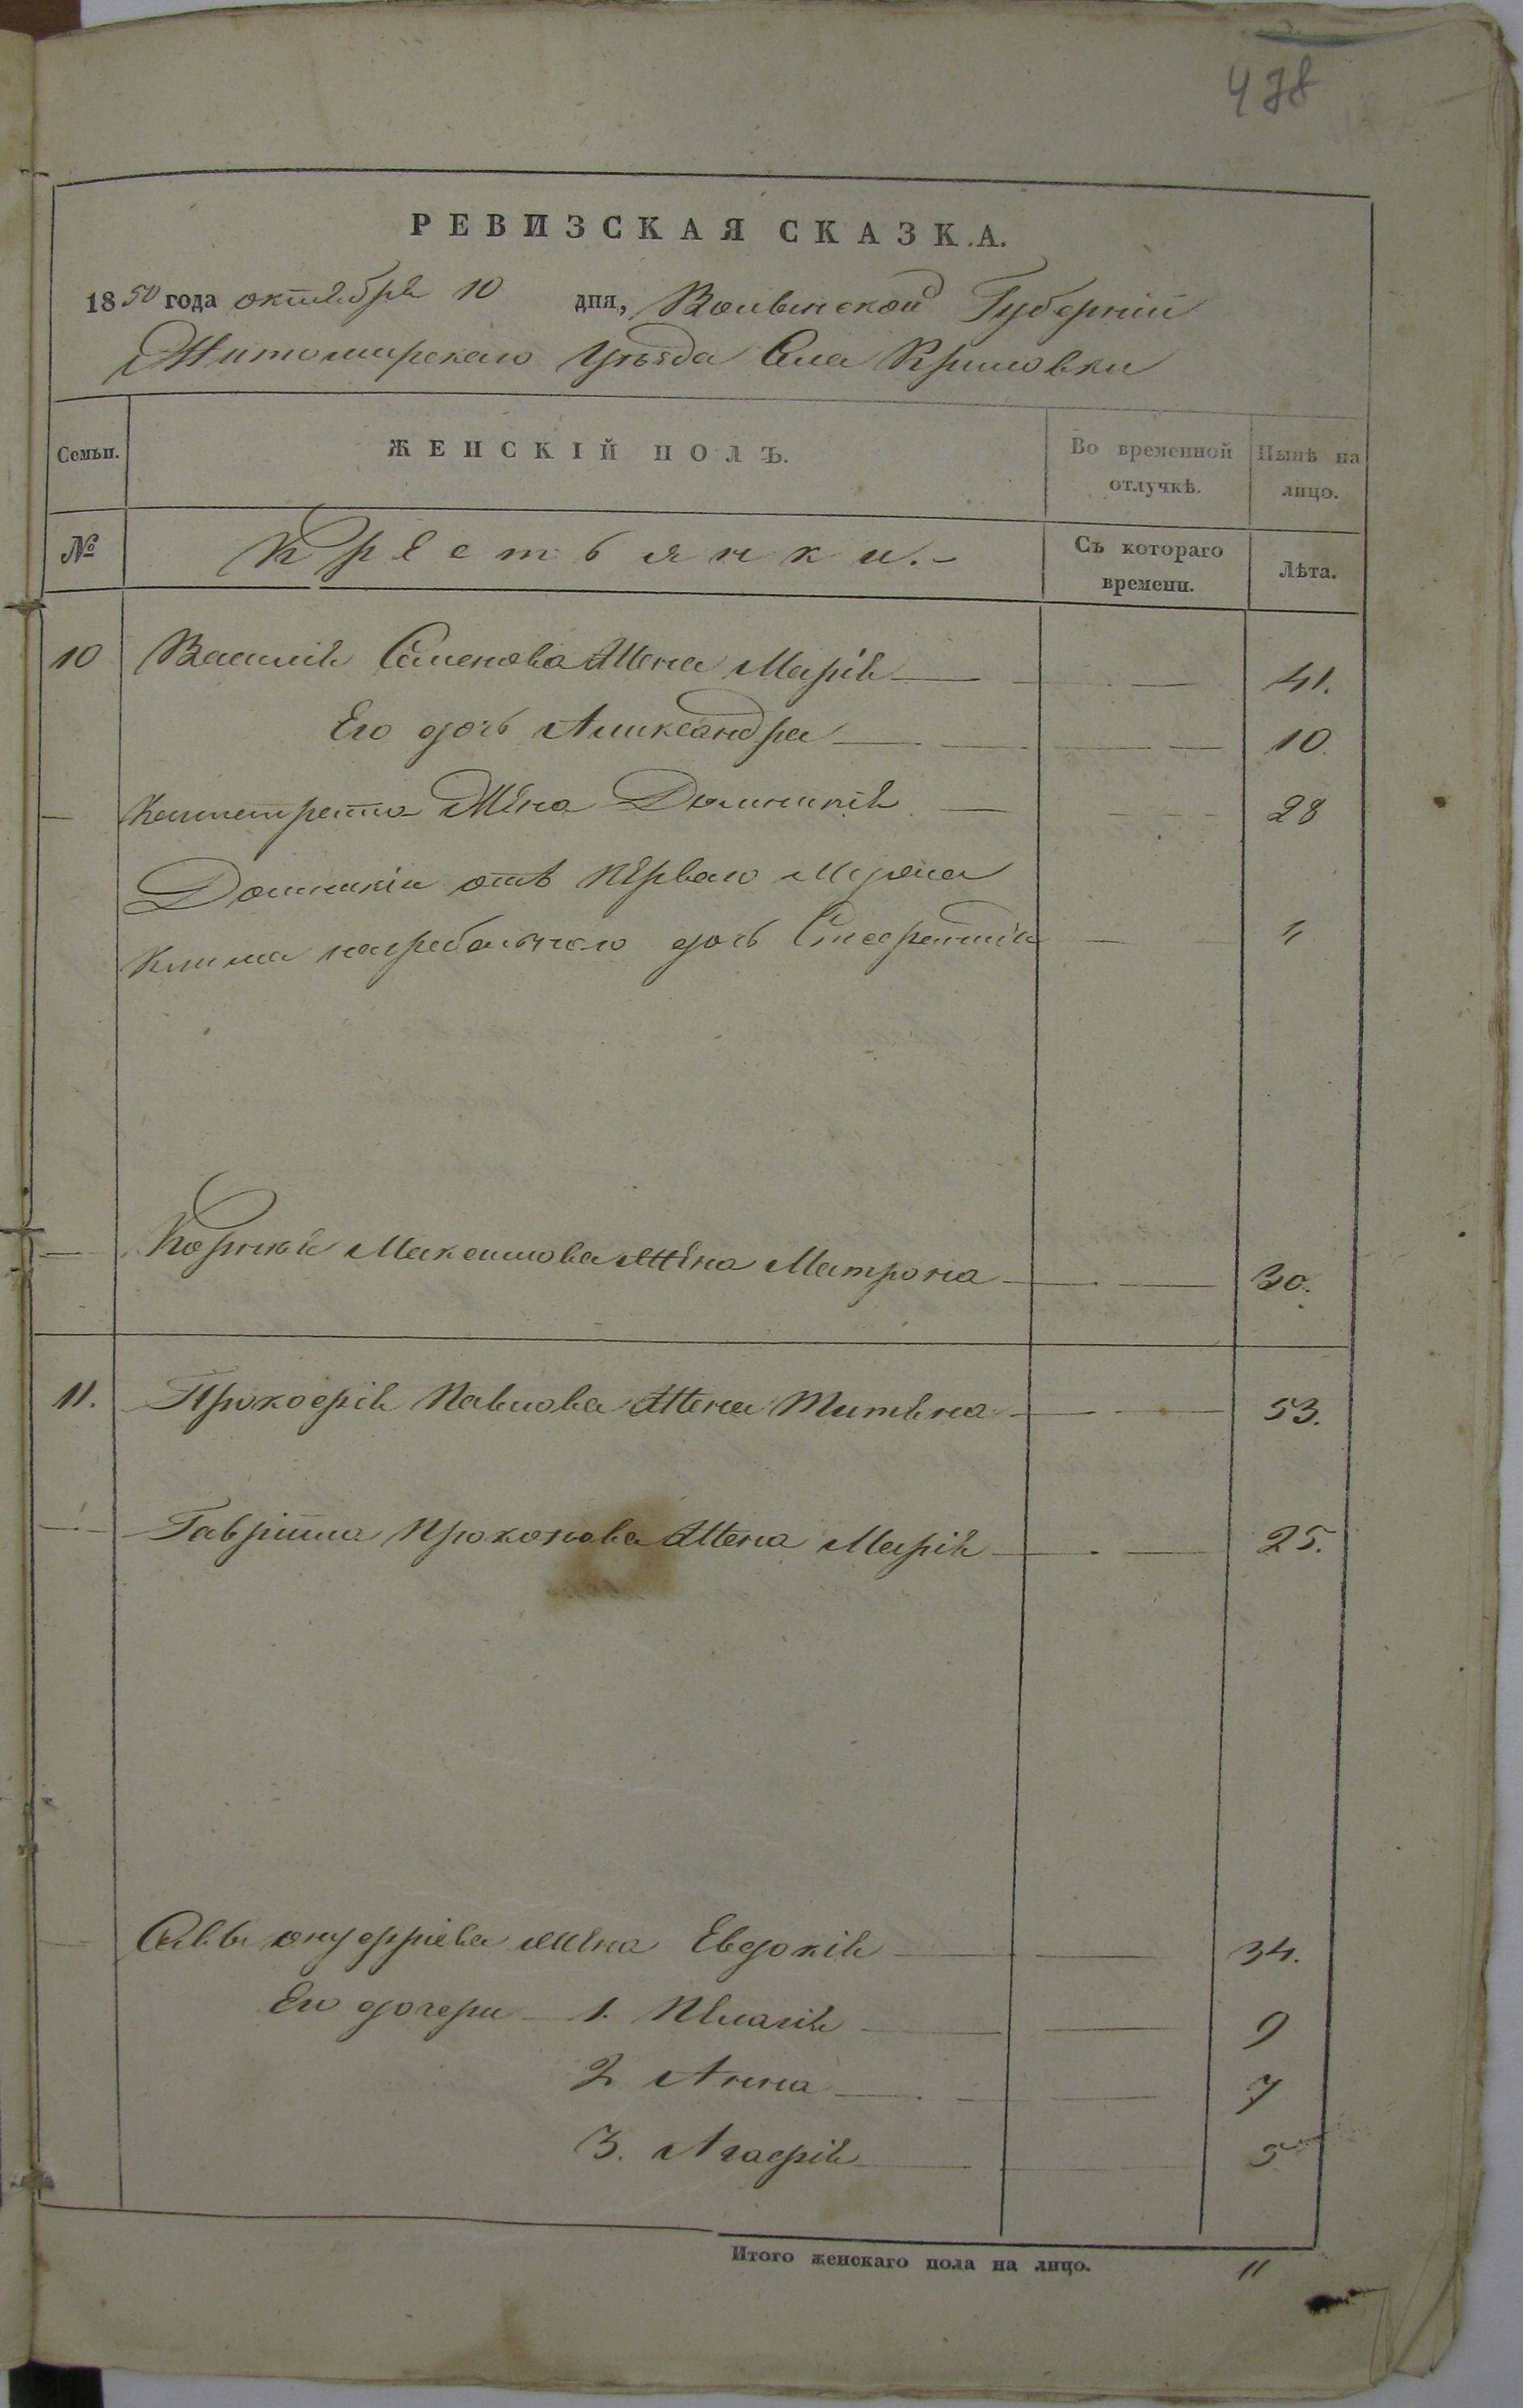 478
РЕВИЗСКАЯ СКАЗКА.
1850 года октября 10 дня, Волынской Губерніи
Житомирскаго Уѣзда Села Крыловки
Семьи. ЖЕНСКІЙ ПОЛЪ. Во временной отлучкѣ. Нынѣ на лицо.
№ Крестьянки. Съ котораго времени. Лѣта.
10 Василія Семенова Жена Марія 41.
Его дочь Александра 10.
Жена Доминикія 28
Доминикіи отъ перваго мужа
Клима дочь 4
Максимова Жена Матрона 30.
11. Прокофія Павлова Жена Титяна 53.
Гавріила Прокопова Жена Марія 25.
Савы онуфріева Жена Евдокія 34.
Его дочери 1. Пелагія 9
2 Анна 7
3. Агафія 5
Итого женскаго пола на лицо. 11